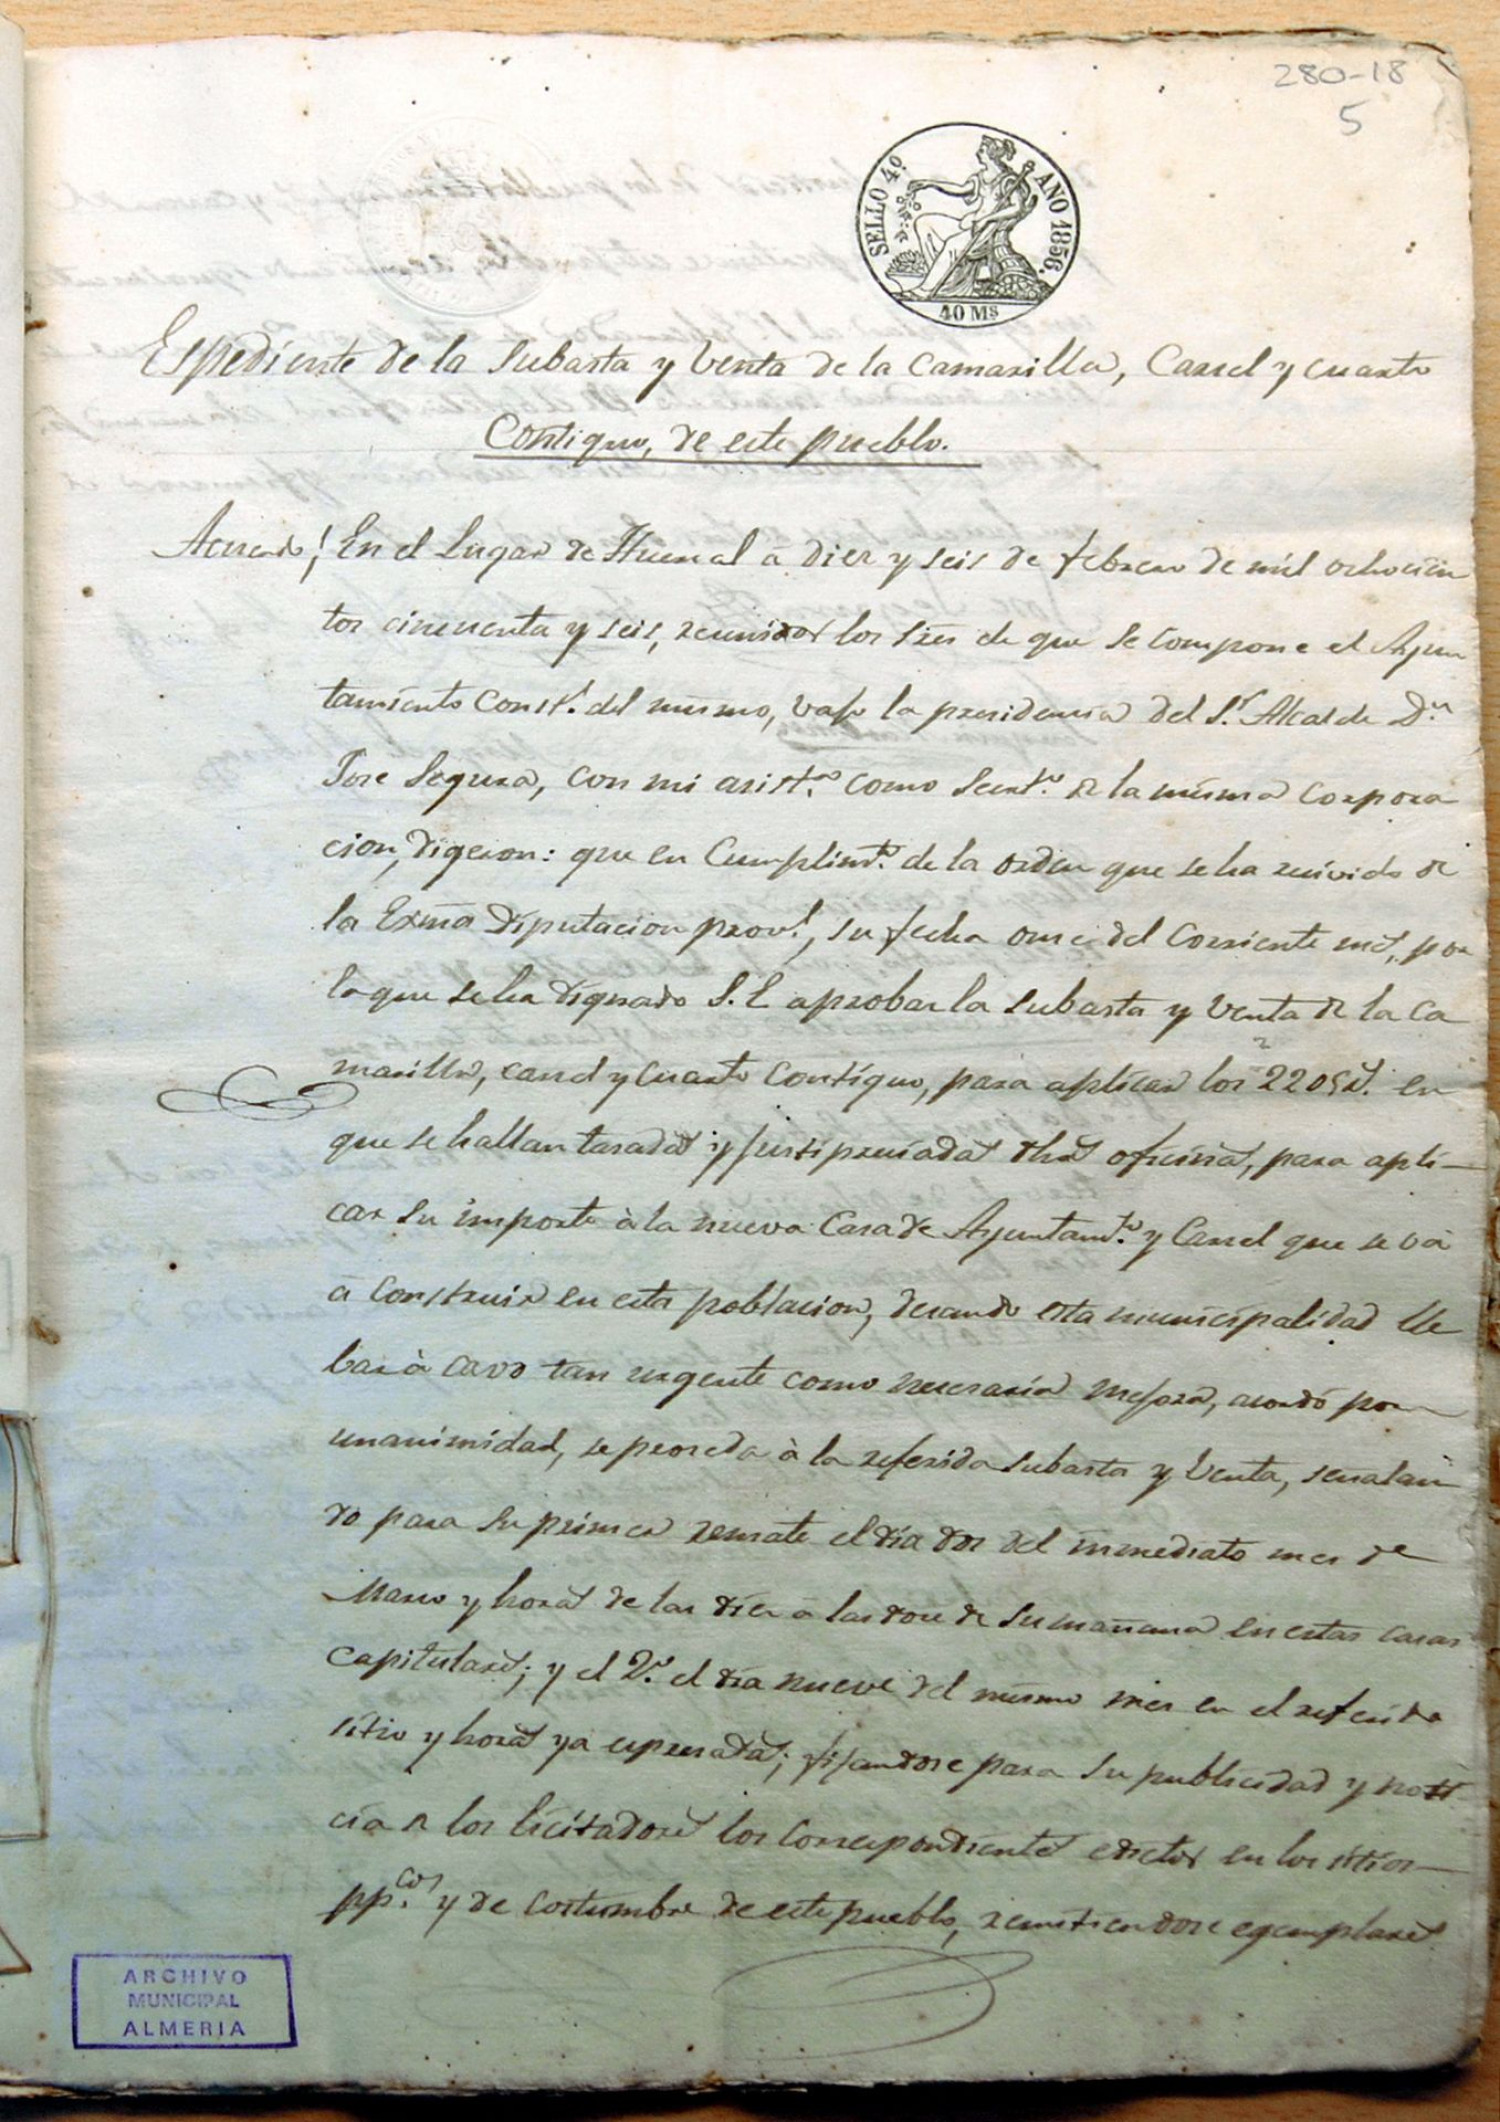 280-18
5
SELLO 4º AÑO 1856.
40 Ms
Espediente de la Subasta y Venta de la Camarilla, Carcel y cuarto
Contiguo, de este pueblo.
Acuerdo! En el Lugar de Huercal a diez y seis de febrero de mil ochocien
tos cincuenta y seis, reunidos los Sres de que se compone el Ayun
tamiento Constl. del mismo, vajo la presidencia del Sr. Alcalde Dn
Jose Segura, con mi asista. como Secrto. de la misma Corpora
cion, digeron: que en Cumplimto. de la orden que se ha recivido de
la Exma Diputacion provl., su fecha once del Corriente mes, por
la que se ha dignado S. E. aprobar la Subasta y Venta de la Ca
marilla, carcel y cuarto Contiguo, para aplicar los 2205 rs. en
que se hallan tasadas y justipreciadas dhas oficinas, para apli-
car su importe à la nueva Casa de Ayuntamto. y Carcel que se và
a Construir en esta poblacion, deseando esta municipalidad lle
bar à cavo tan urgente como necesaria mejora, acordó por
unanimidad, se proceda à la referida Subasta y Venta, señalan
do para su primer remate el dia dos del inmediato mes de
Marzo y horas de las diez a las doce de su mañana en estas casas
Capitulares; y el 2º. el dia nueve del mismo mes en el referido
sitio y horas ya espresadas; fijandose para su publicidad y noti
cia de los licitadores los correspondientes edictos en los sitios
ppcos. y de costumbre de este pueblo, remitiendose egemplares
ARCHIVO
MUNICIPAL
ALMERIA